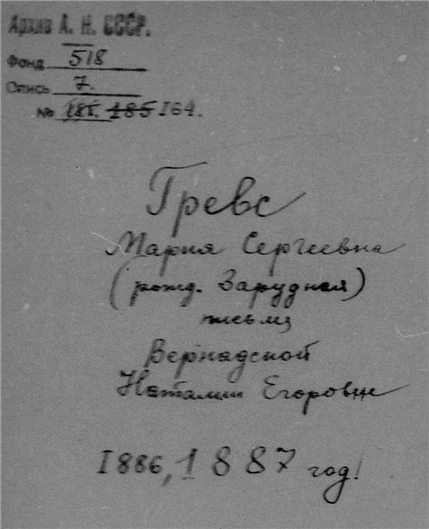 Архив А. Н. СССР.
Фонд 518
Опись 7.
№ 181. 185 164.
Гревс
Мария Сергеевна
(рожд. Зарудная)
письма
Вернадской
Наталии Егоровне
1886, 1887 год!